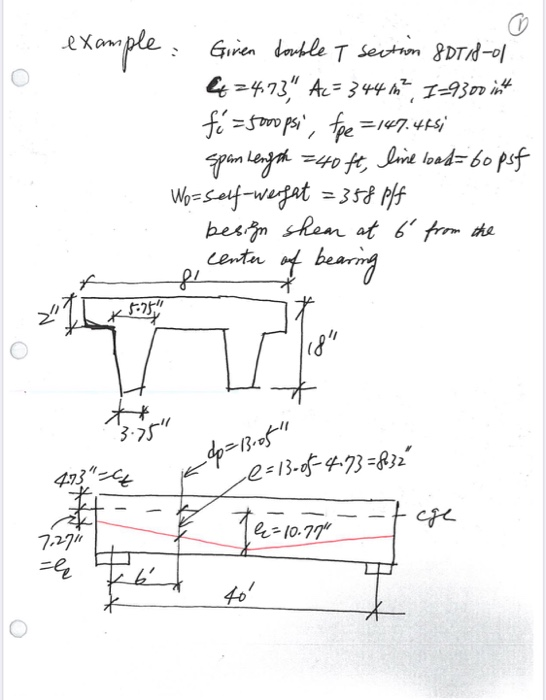 ①
example: Given double T section 8DT18-01
Ct = 4.73", Ac = 344 in², I = 9300 in⁴
fc' = 5000 psi, fpe = 147.4 ksi
span length = 40 ft, line load = 60 psf
WD = self-weight = 358 plf
design shear at 6' from the
center of bearing
8'
2"
5.75"
18"
3.75"
dp = 13.05"
e = 13.05 - 4.73 = 8.32"
4.73" = Ct
cgc
ec = 10.77"
7.27"
= ee
6'
40'